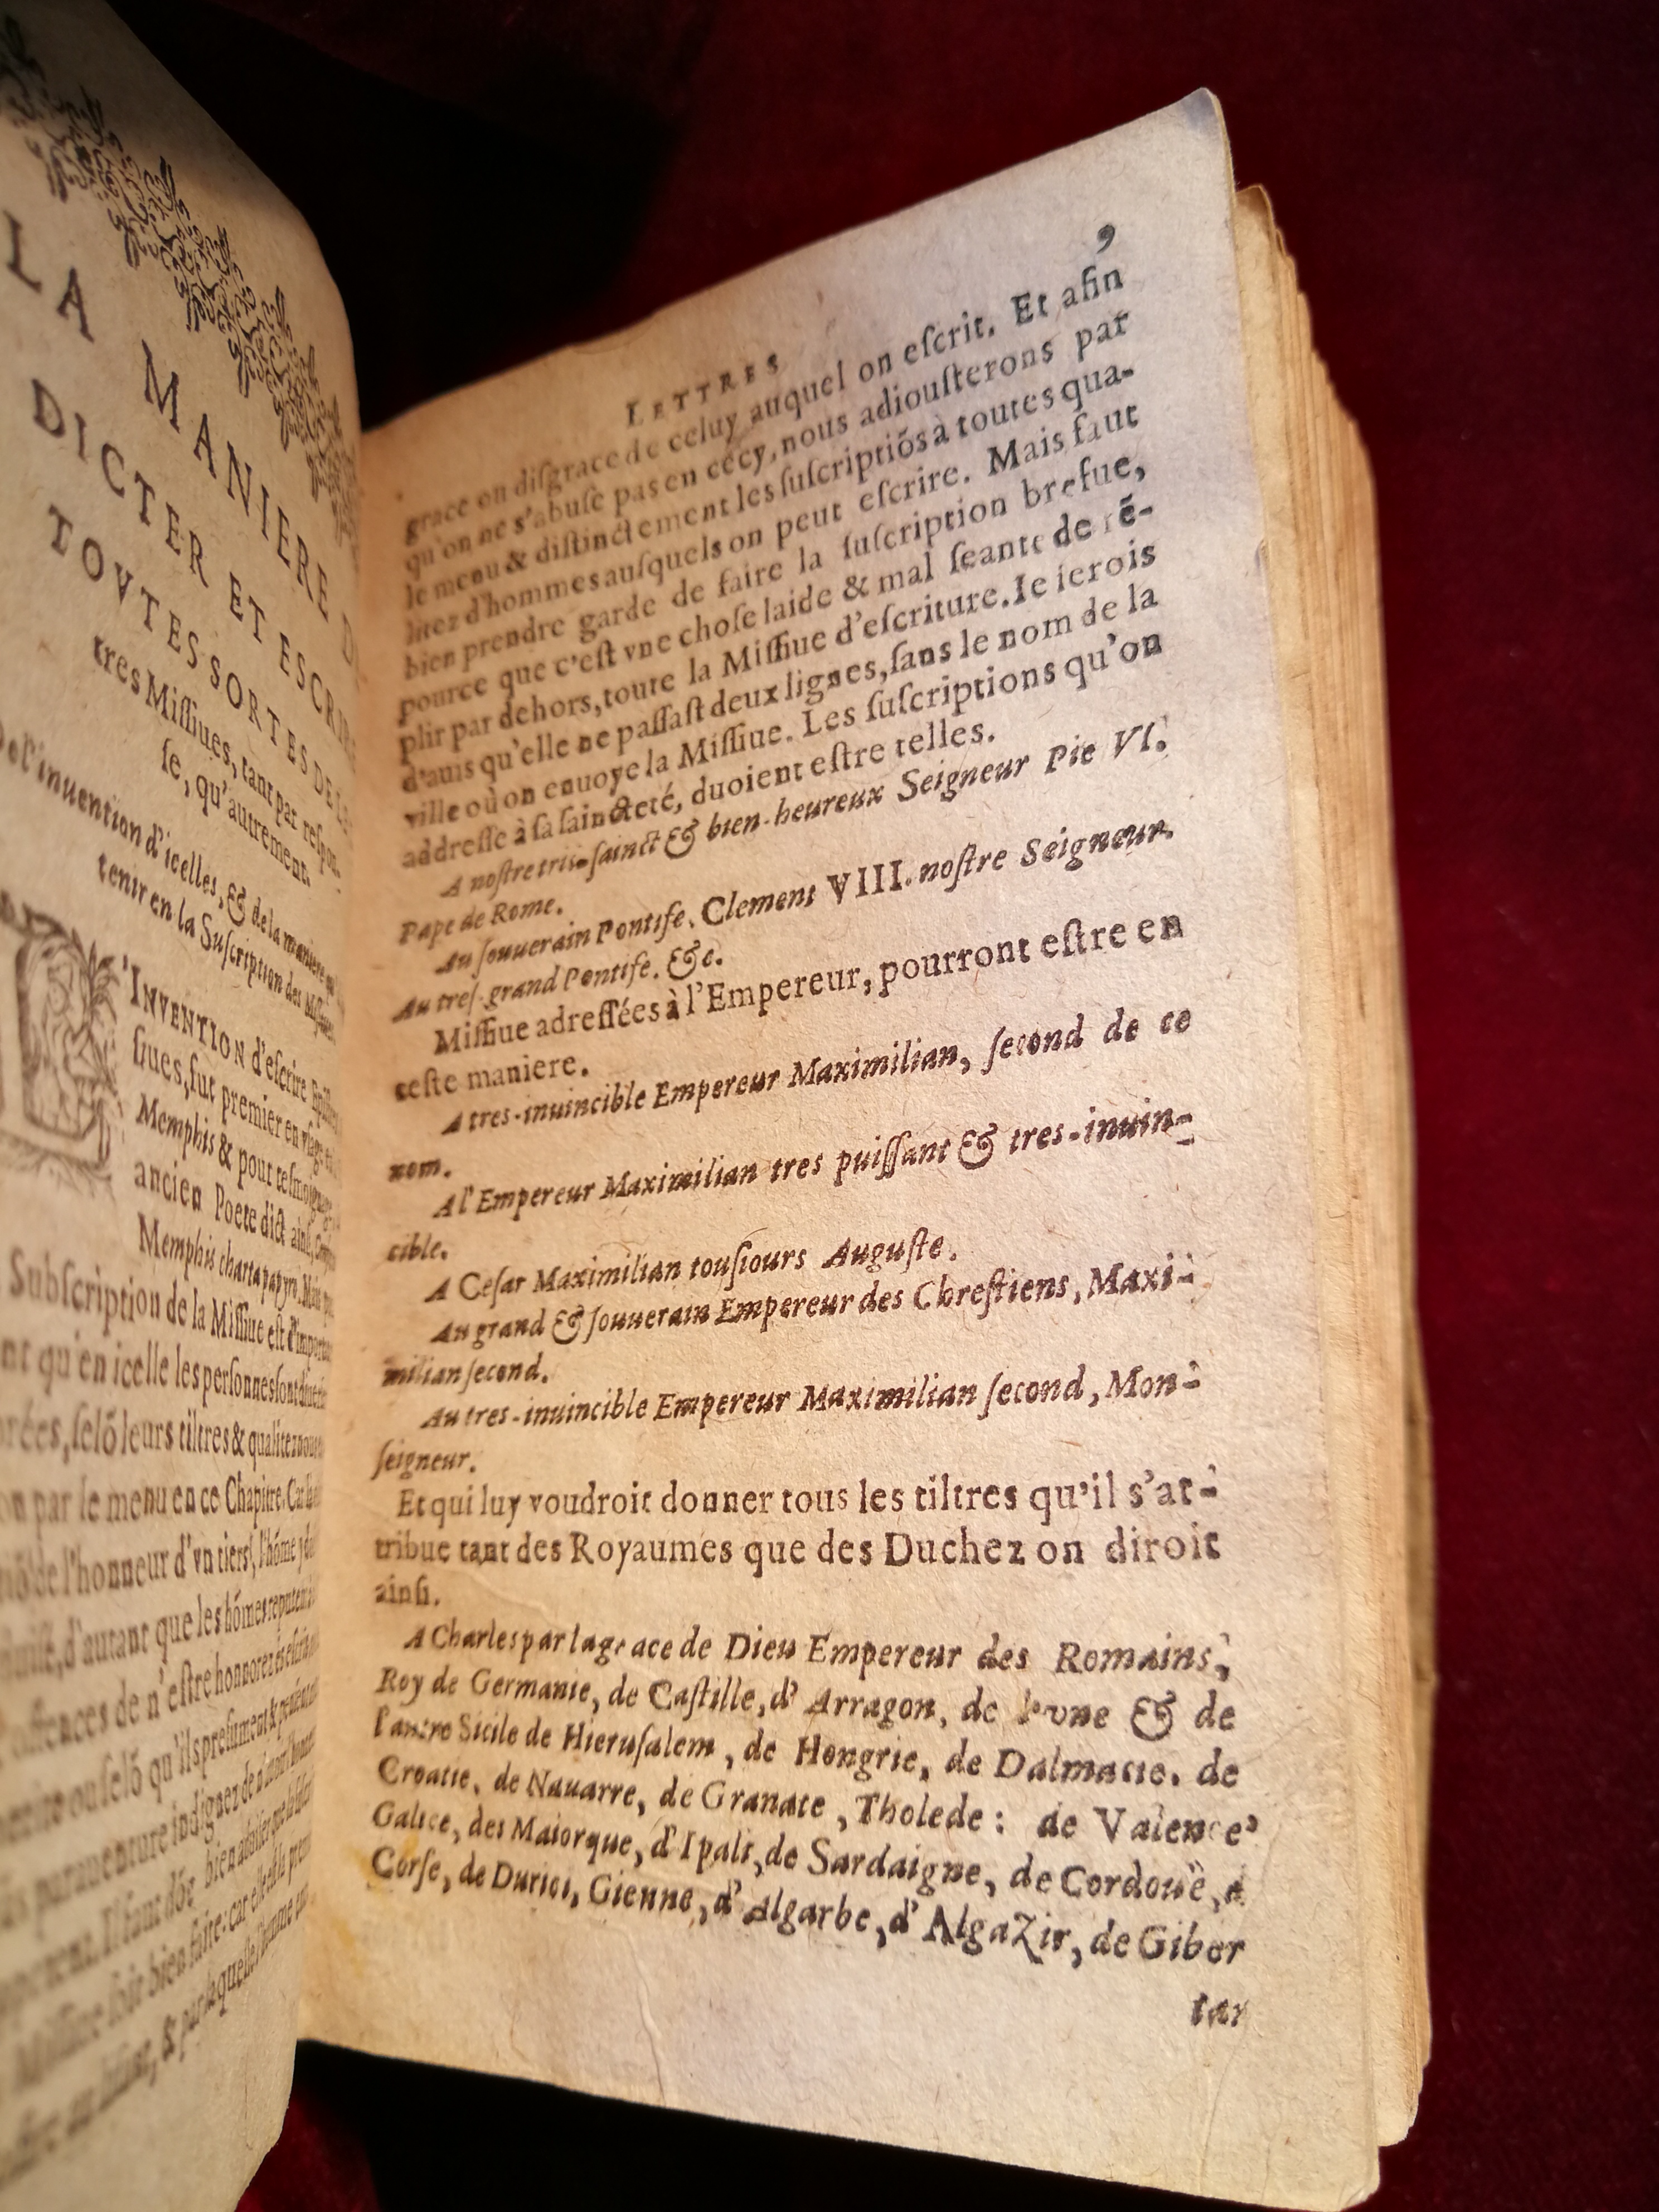 LA MANIERE
DICTER ET ESCRI
TOVTES SORTES DE
tres Missiues, tant par respon-
se, qu'autrement.
De l'inuention d'icelles, & de la maniere
tenir en la Suscription des Missiues
'INVENTION d'escrire
siues, fut premier en vsage
Memphis & pour tesmoignage
ancien Poete dict ainsi,
Memphis charta papyro. Mais
Subscription de la Missiue est d'importan
nt qu'en icelle les personnes sont
rées, selõ leurs tiltres & qualitez
on par le menu en ce Chapitre. Car
de l'honneur d'vn tiers, l'hõme
d'autant que les hõmes reputent
offences de n'estre honnorez
ou selõ qu'ils presument &
parauenture indignez de
Il faut dõc bien
Missiue soit bien faite: car elle est la
& par laquelle l'homme
LETTRES 9
grace ou disgrace de celuy auquel on escrit. Et afin
qu'on ne s'abuse pas en cecy, nous adiousterons par
le menu & distinctement les suscriptiõs à toutes qua-
litez d'hommes ausquels on peut escrire. Mais faut
bien prendre garde de faire la suscription brefue,
pource que c'est vne chose laide & mal seante de rẽ-
plir par dehors, toute la Missiue d'escriture. Ie serois
d'auis qu'elle ne passast deux lignes, sans le nom de la
ville où on enuoye la Missiue. Les suscriptions qu'on
addresse à sa saincteté, duoient estre telles.
A nostre tris-sainct & bien-heureux Seigneur Pie VI.
Pape de Rome.
Au souuerain Pontife, Clement VIII. nostre Seigneur.
Au tres-grand Pontife. &c.
Missiue adressées à l'Empereur, pourront estre en
ceste maniere.
A tres-inuincible Empereur Maximilian, second de ce
nom.
A l'Empereur Maximilian tres puissant & tres-inuin-
cible.
A Cesar Maximilian tousiours Auguste.
Au grand & souuerain Empereur des Chrestiens, Maxi-
milian second.
Au tres-inuincible Empereur Maximilian second, Mon-
seigneur.
Et qui luy voudroit donner tous les tiltres qu'il s'at-
tribue tant des Royaumes que des Duchez on diroit
ainsi.
A Charles par la grace de Dieu Empereur des Romains,
Roy de Germanie, de Castille, d'Arragon, de l'vne & de
l'autre Sicile de Hierusalem, de Hongrie, de Dalmacie. de
Croatie, de Nauarre, de Granate, Tholede: de Valence,
Galice, des Maiorque, d'Ipali, de Sardaigne, de Cordouë, d
Corse, de Durici, Gienne, d'Algarbe, d'Algazir, de Giber
tar